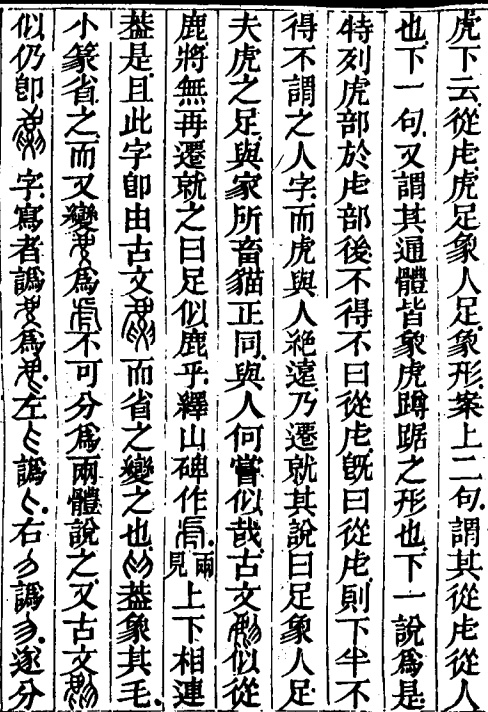 虎下云從虍虎足象人足象形案上二句謂其從虍從人
也下一句又謂其通體皆象虎蹲踞之形也下一說爲是
特列虎部於虍部後不得不曰從虍旣曰從虍則下半不
得不謂之人字而虎與人絕遠乃遷就其說曰足象人足
夫虎之足與家所畜貓正同與人何嘗似哉古文似從
鹿將無再遷就之曰足似鹿乎繹山碑作兩見上下相連
葢是且此字卽由古文而省之變之也葢象其毛
小篆省之而又變爲不可分爲兩體說之又古文
似仍卽字寫者譌爲左譌右譌遂分